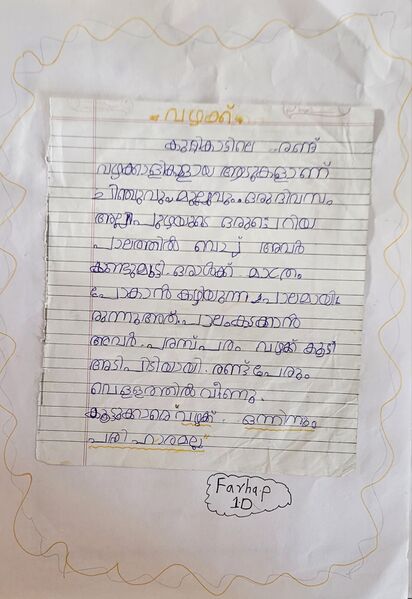 വഴക്ക്
കുറ്റികാട്ടിലെ രണ്ട്
വഴക്കാളികളായ ആടുകളാണ്
ചിന്നുവും മുല്ലുവും. ഒരു ദിവസം
അല്ലിപുഴയുടെ ഒരു ചെറിയ
പാലത്തിൽ വെച്ച് അവർ
കണ്ടുമുട്ടി. ഒരാൾക്ക് മാത്രം
പോകാൻ കഴിയുന്ന പാലമായി
രുന്നു അത്. പാലംകടക്കാൻ
അവർ പരസ്പരം വഴക്ക് കൂടി
അടിപിടിയായി. രണ്ട് പേരും
വെള്ളത്തിൽ വീണു.
കൂട്ടുകാരെ വഴക്ക് ഒന്നിനും
പരി ഹാരമല്ല
Farhap
1D